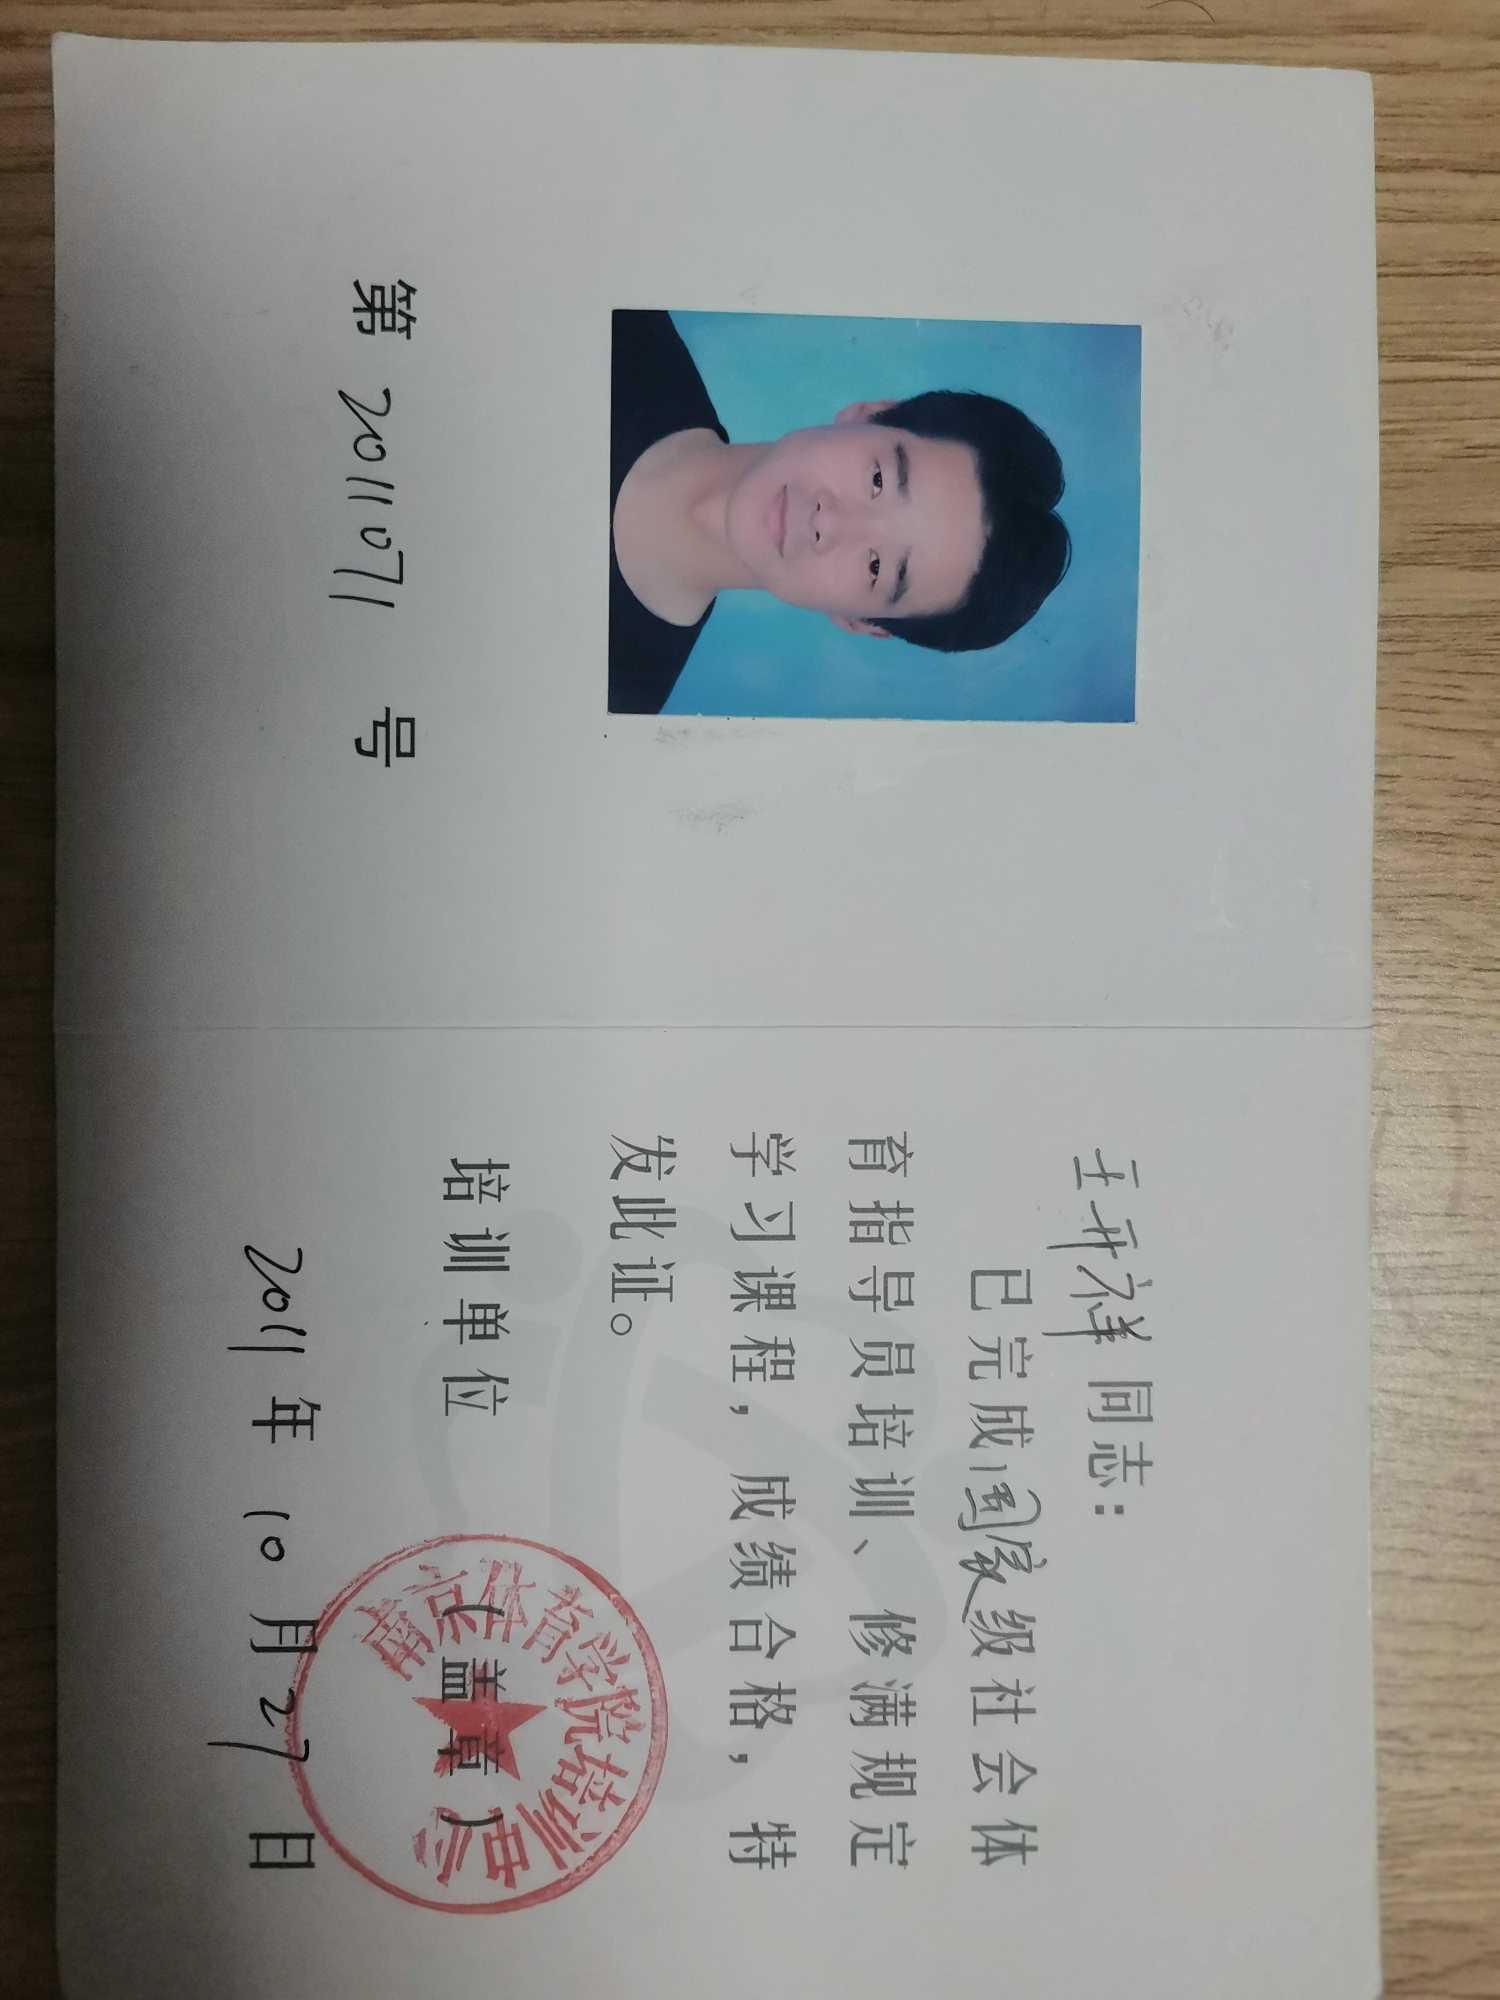 第2011071号
王开祥同志：
已完成国家级社会体
育指导员培训、修满规定
学习课程，成绩合格，特
发此证。
培训单位
南京体育学院培训中心
（盖章）
2011年10月27日